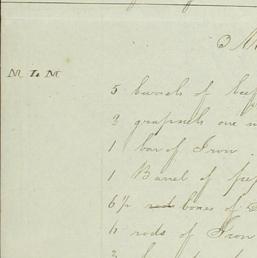 3 M
M To M
5 barrels of beef
2 grapnels one
1 bar of Iron.
1 Barrel of
6½ boxes of
6 rods of Iron